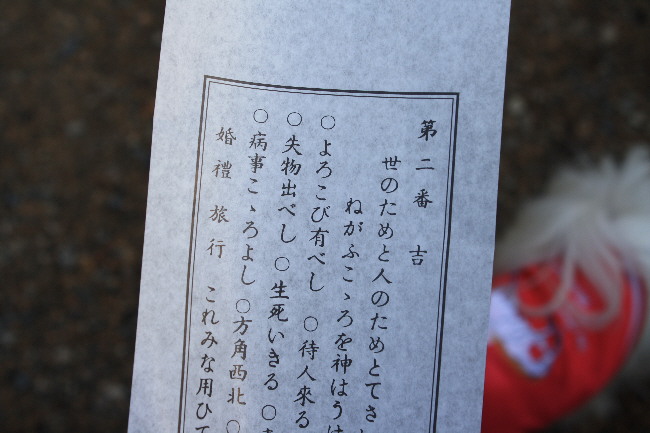 第二番 吉
世のためと人のためとてさ
ねがふこゝろを神はうけ
○よろこび有べし ○待人來る
○失物出べし ○生死いきる ○
○病事こゝろよし ○方角西北 ○
婚禮 旅行 これみな用ひて